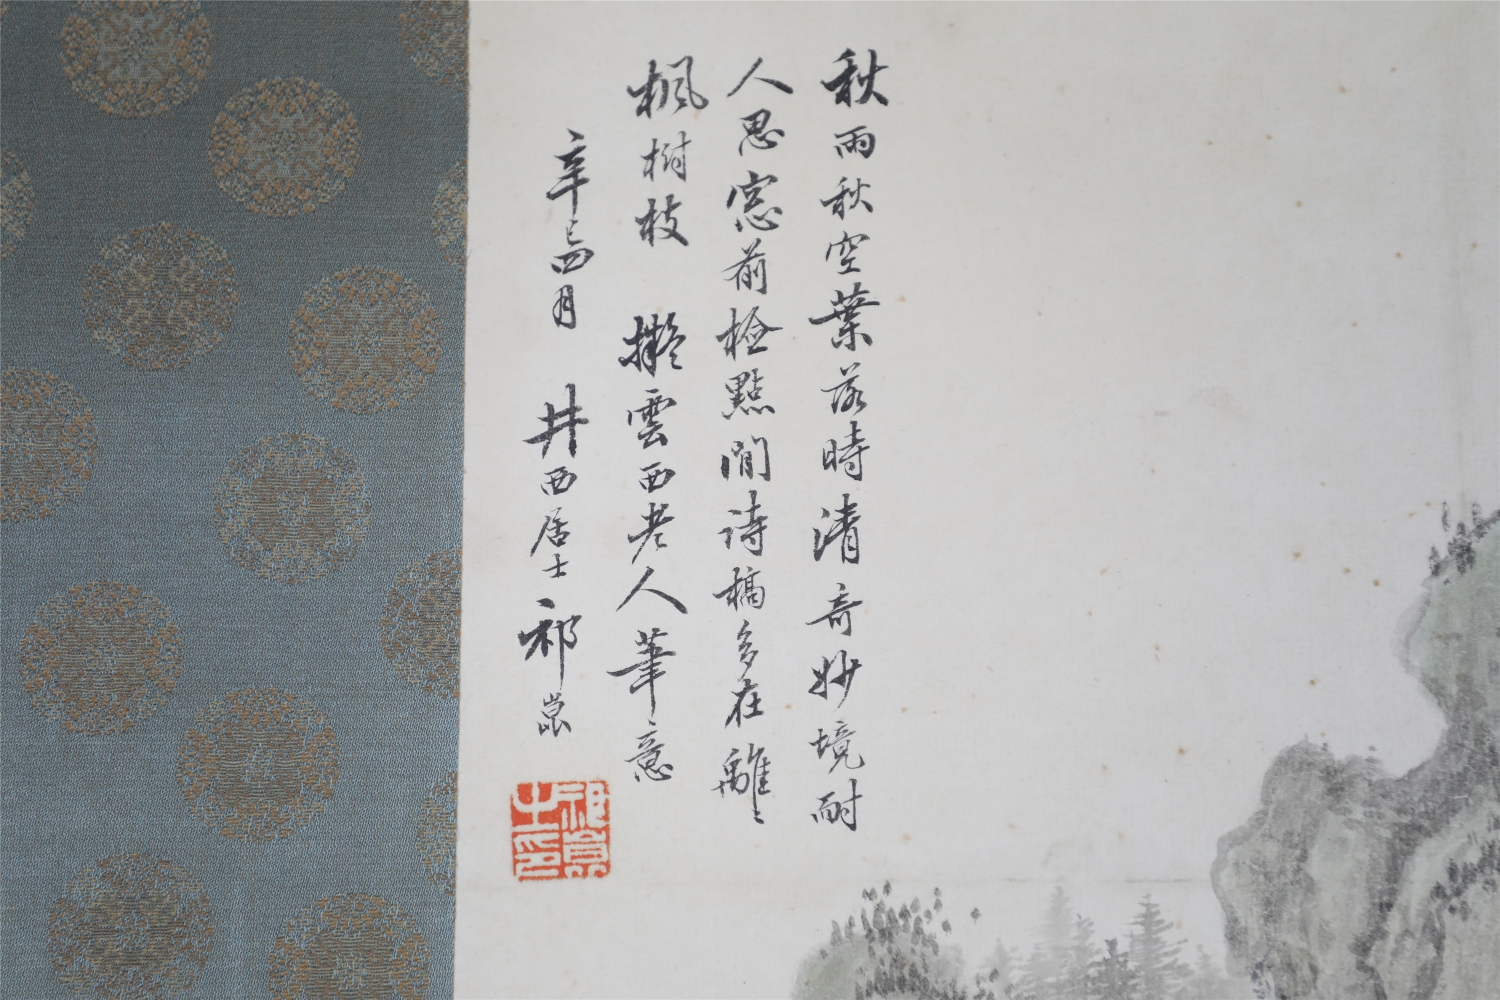 秋雨秋空葉落時清奇妙境耐
人思窓前檢點閒詩稿多在離〻
楓樹枝　擬雲西老人筆意
辛巳四月　井西居士祁崑